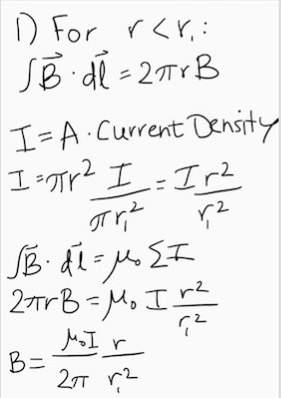 1) For r < r₁:
∫B⃗ · dl⃗ = 2πrB
I = A · Current Density
I = πr² I/πr₁² = Ir²/r₁²
∫B⃗ · dl⃗ = μ₀ ΣI
2πrB = μ₀ I r²/r₁²
B = μ₀I/2π r/r₁²